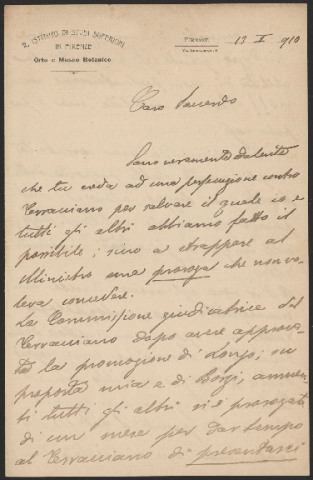 R. ISTITUTO DI STUDI SUPERIORI
IN FIRENZE
Orto e Museo Botanico
FIRENZE
13 I 910
Caro Saccardo
Sono veramente dolente
che tu creda ad una persecuzione contro
Terracciano per salvare il quale io e
tutti gli altri abbiamo fatto il
possibile; sino a strappare al
Ministro una proroga che non vo-
leva concedere.
La Commissione giudicatrice del
Terracciano dopo avere approva-
ta la promozione di Longo, su
proposta mia e di Borzì, annuen-
ti tutti gli altri si è prorogata
di un mese per dar tempo
al Terracciano di presentarsi